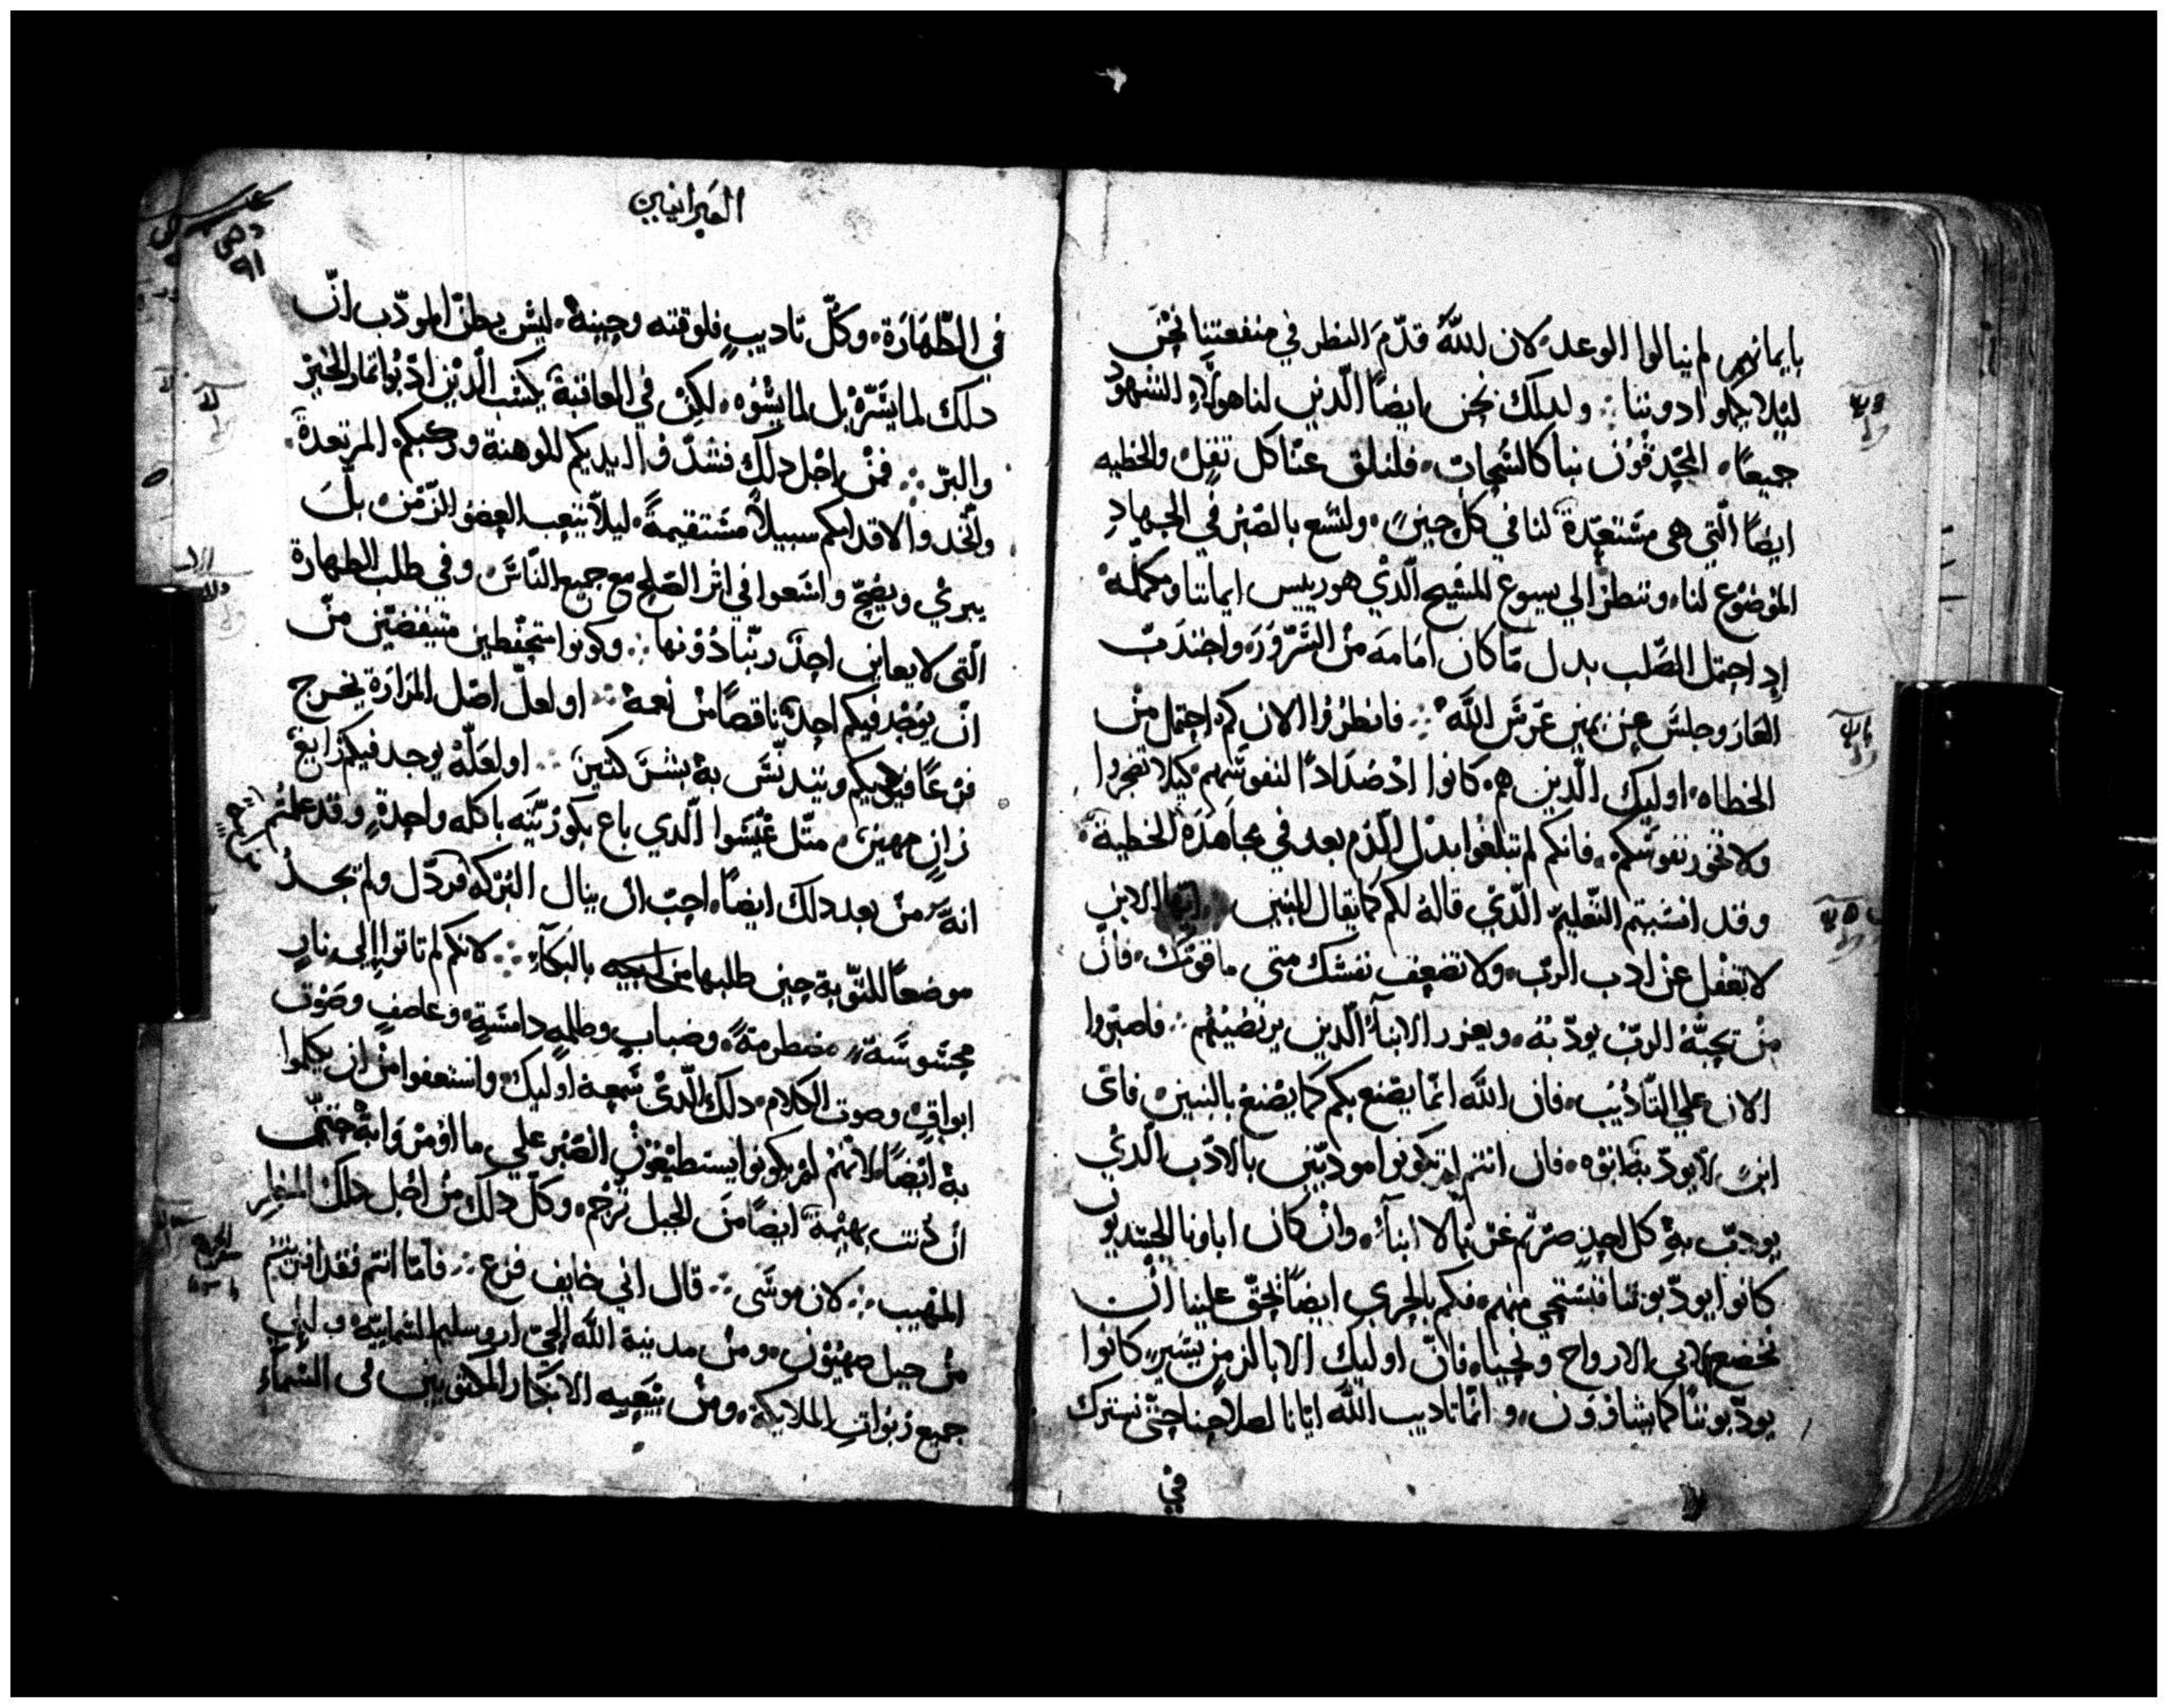 بايمانهم لم ينالوا الوعد لان الله قدّم النظر في منفعتنا نحن
ليلا يكملوا دوننا ولدلك نحن ايضاً الّدين لنا هولاء الشهود
جميعاً المحدقون بنا كالسحاب فلنلق عنّا كل ثقل والخطيه
ايضاً الّتي هى مستعدّة لنا في كل حينٍ ولنسع بالصبر في الجهادِ
الموضوع لنا وننظر الي يسوع المسيح الّدي هو رييس ايماننا ومكمله
اد احتمل الصّلب بدل ما كان امامه من السّرور واجتدب
العار وجلس عن يمين عرش اللّه فانظروا الان كم احتمل من
الخطاه اوليك الّدين هم كانوا اضداداً لنفوسهم كيلا تضجروا
ولا تخور نفوسكم فانكم لم تبلغوا بدل الدّم بعد في مجاهدة الخطية
وقد انسيتم التعليم الّدي قاله لكم كما يقال للبنين ايها الابن
لا تغفل عن ادب الربّ ولا تضعف نفسك متى ما قومك فان
من يحبّهُ الربّ يودّبه ويعزر الابنآء الّدين يرتضيهم فاصبروا
الان علي التاديب فان اللّه انّما يصنع بكم كما يصنع بالبنين فاى
ابنٍ لا يودّبه ابوه فان انتم لم تكونوا مودبّين بالادب الّدي
يودّب به كل احدٍ صرتم غربا لا ابنآء وان كان اباونا الجسديون
كانوا يودّبوننا فنستحي منهم فكم بالحري ايضاً يحقّ علينا ان
نخضع لابي الارواح ونحيا فانّ اوليك الابا لزمنٍ يسيرٍ كانوا
يودّبوننا كما يشاوون وانّما تاديب اللّه ايانا لصلاحنا حتّى نشترك
في
العبرانيين
في الطّهارة وكلّ تاديبٍ فلوقته وحينه ليس يظنّ المودّب انّ
دلك لما يسرّه بل لما يسوه لكن في العاقبة يكسب الّدين ادّبوا ثمار الخير
والبرّ فمن اجل دلك فشدّدوا ايديكم الموهنة وركبكم المرتعدة
واتّخدوا لاقدامكم سبيلاً مستقيمةً ليلا يتعب العضو الزّمن بل
يبري ويصحّ واسعوا في اثر الصلح مع جميع النّاس وفي طلب الطهارة
الّتى لا يعاين احد ربّنا دونها وكونوا متحفّظين
ان يوجد فيكم احد ناقصاً من نعمة او لعلّ اصل المرارة يخرج
فرعاً فيوديكم ويتدنّس به بشر كثير او لعلّه يوجد فيكم زايغ
زانٍ مهين مثل عيسوا الّدي باع بكوريّته باكله واحدةٍ وقد علمتم
انهّ من بعد دلك ايضاً احبّ ان ينال البركه فردّل ولم يجد
موضعاً للتوبة حين طلبها من ابيه بالبكآء لانكم لم تاتوا الي نارٍ
محسوسة مضطرمةً وضبابٍ وظلمه دامسةٍ وعاصفٍ وصوت
ابواقٍ وصوت الكلام دلك الّدي سمعه اوليك واستعفوا من ان يكلموا
به ايضاً لانّهم لم يكونوا يستطيعون الصبر علي ما اومروا به حتّى
ان دنت بهيمة ايضاً من الجبل ترجم وكلّ دلك من اجل دلك المنظر
المهيب لان موسى قال اني خايف فزع فامّا انتم فقد اقتربتم
من جبل صهيون ومن مدينة اللّه الحيّ اروسليم السّماييّة والي
جميع ربوات الملايكة ومن بيعيه الابكار المكتوبين في السّماء